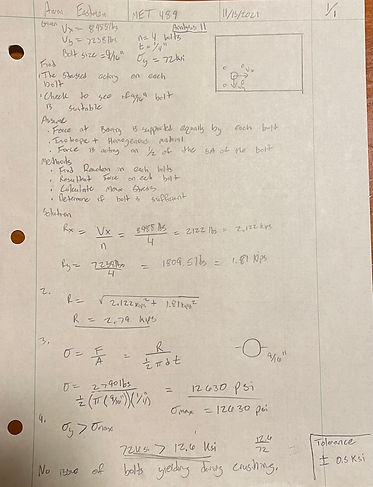 MET 489
11/13/2021
1/1
Given
Analysis 11
n= 4 bolts
t = 1/4"
Bolt size = 9/16"
σy = 72ksi
Find
• The stresses acting on each
bolt
• Check to see if 9/16" bolt
is suitable
Assume
• Force at Bearing is supported equally by each bolt
• Isotropic + Homogenous material
• Force is acting on 1/2 of the SA of the bolt
Methods
• Find Reaction in each bolts
• Resultant Force on each bolt
• Calculate Max Stress
• Determine if bolt is sufficient
Solution
Rx = Vx / n = / 4 = 2122 lbs = 2.122 kips
Ry = 7238 lbs / 4 = 1809.5 lbs = 1.81 kips
2.
R = √ 2.122 kips² + 1.81 kips²
R = 2.79 kips
3.
σ = F / A = R / ½ π d t
9/16"
σ = 2790 lbs / ½ (π (9/16")(1/4)) = 12630 psi
σmax = 12630 psi
4.
σy > σmax
72 ksi > 12.6 ksi
12.6 / 72
Tolerance
± 0.5 Ksi
No issue of bolts yielding during crushing.